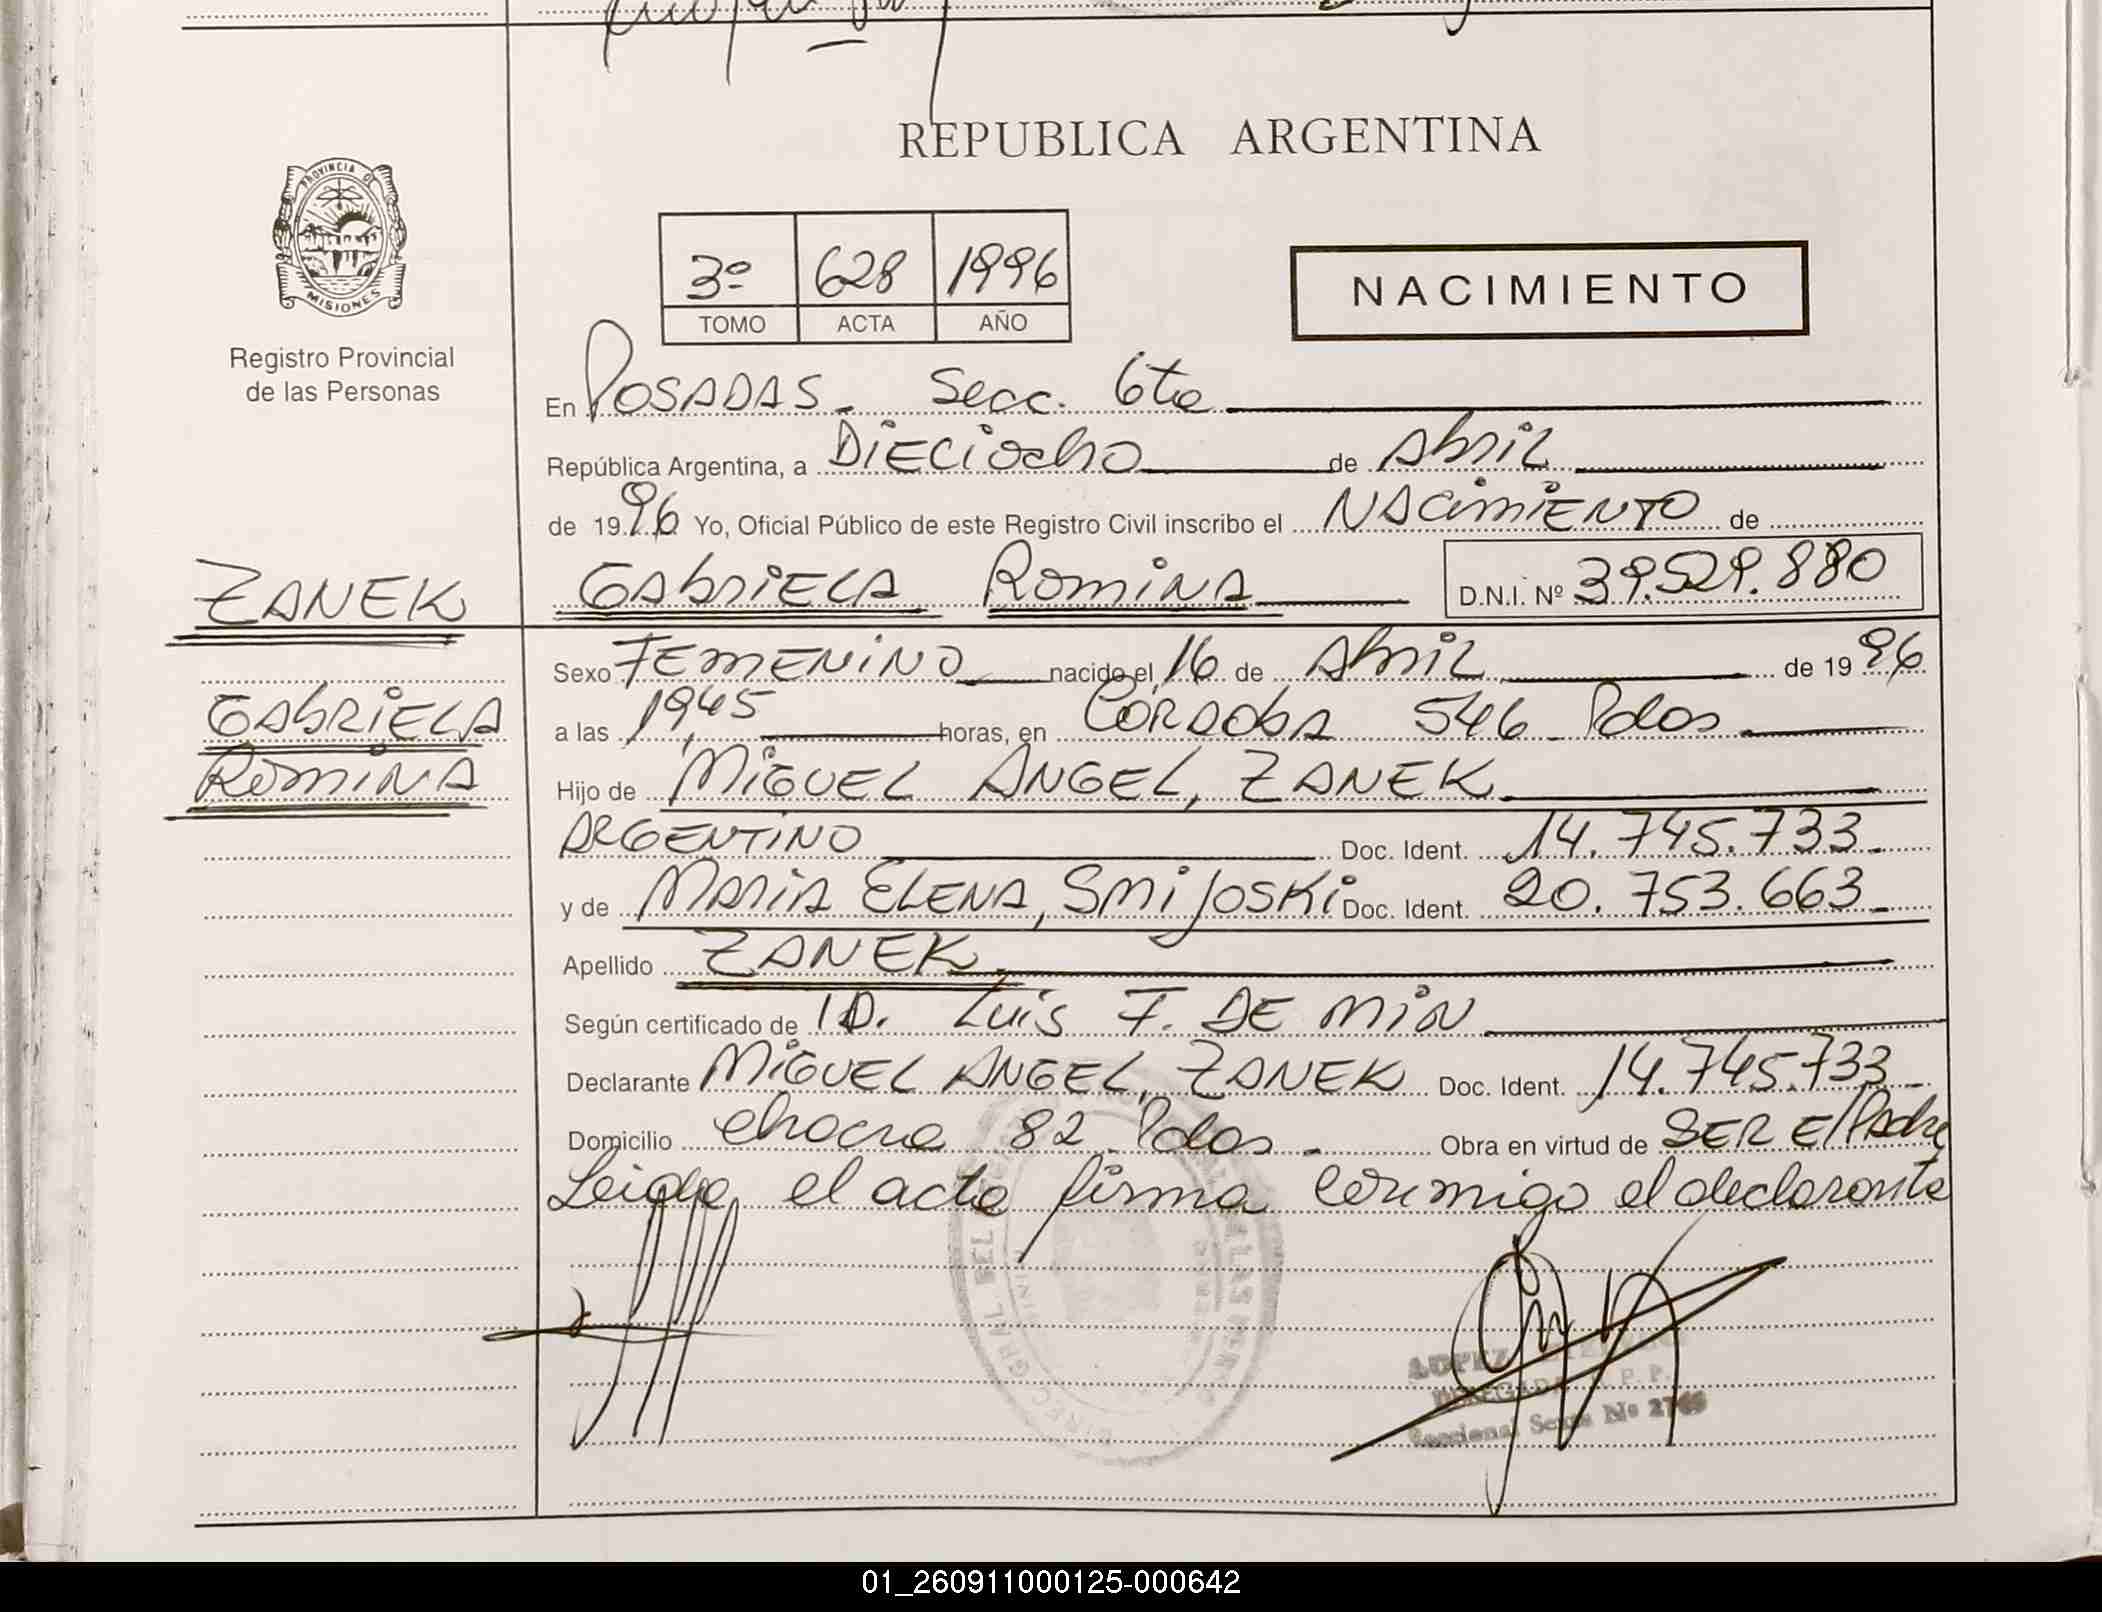 REPUBLICA ARGENTINA
PROVINCIA DE
MISIONES
Registro Provincial
de las Personas
3º 628 1996
TOMO ACTA AÑO
NACIMIENTO
En POSADAS - Secc. 6ta
República Argentina, a Dieciocho de Abril
de 1996 Yo, Oficial Público de este Registro Civil inscribo el NACIMIENTO de
ZANEK
GABRIELA ROMINA D.N.I. Nº 39.529.880
GABRIELA
ROMINA
Sexo FEMENINO nacido el 16 de Abril de 1996
a las 19,45 horas, en CÓRDOBA 546 - Pdas
Hijo de MIGUEL ANGEL, ZANEK
ARGENTINO Doc. Ident. 14.745.733-
y de MARIA ELENA, SMIJOSKI Doc. Ident. 20.753.663-
Apellido ZANEK
Según certificado de D. Luis F. DE MIN
Declarante MIGUEL ANGEL, ZANEK Doc. Ident. 14.745.733-
Domicilio chacra 82 - Pdas - Obra en virtud de SER El Padre
Leida el acta firma conmigo el declarante
DELEGADA R. P. P.
Seccional Sexta Nº
01_260911000125-000642